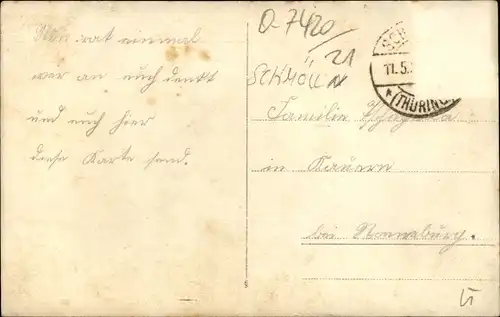 Nun rat einmal
wer an euch denkt
und euch hier
diese Karte send.
O-7420/21
SCHMÖLLN
SCH
11.5.
*(THÜRING.
Familie
in Kauern
bei Ronneburg.